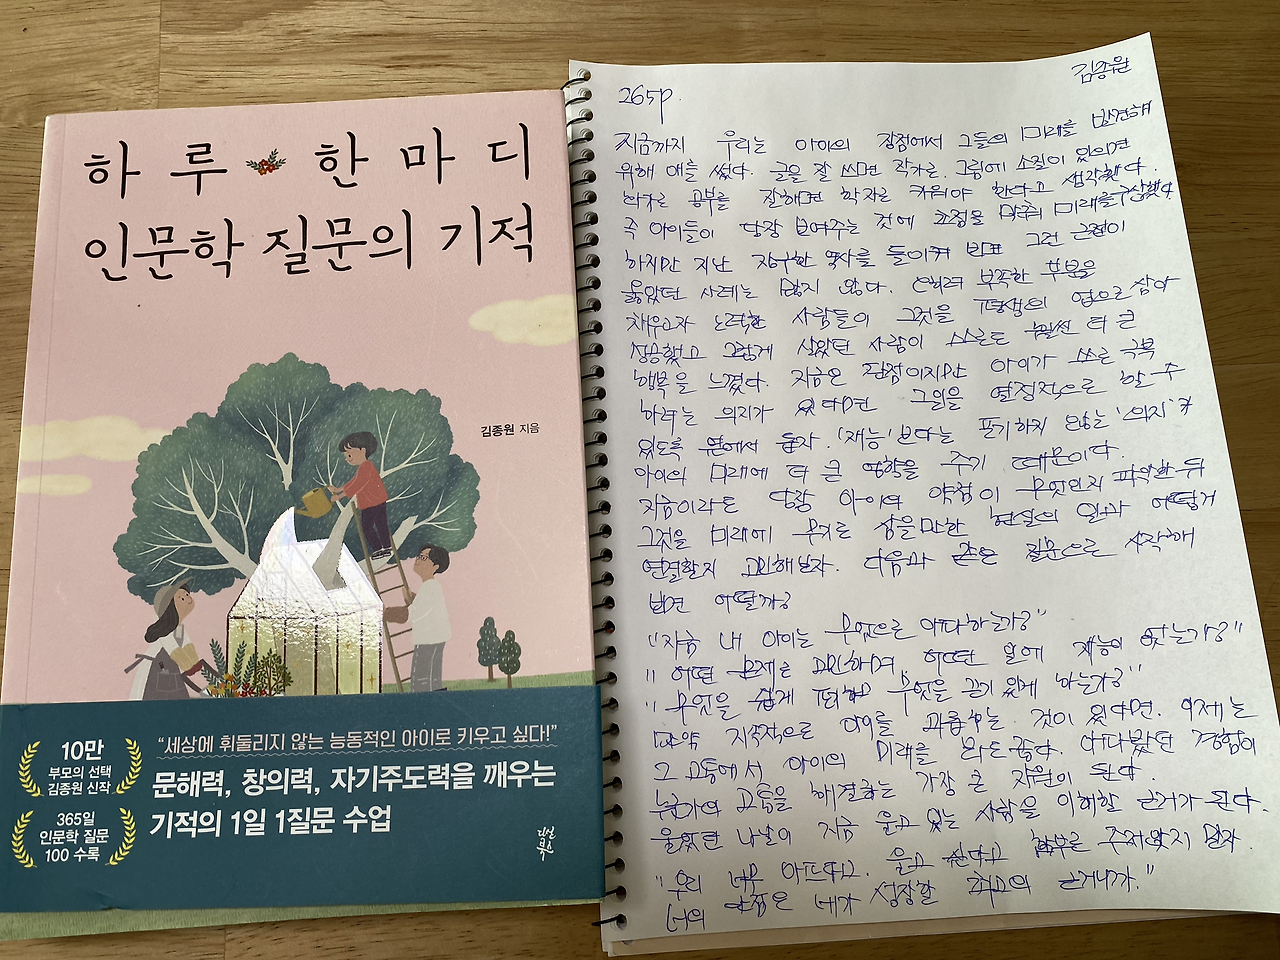 하루 한마디
인문학 질문의 기적
김종원 지음
10만
부모의 선택
김종원 신작
365일
인문학 질문
100 수록
"세상에 휘둘리지 않는 능동적인 아이로 키우고 싶다!"
문해력, 창의력, 자기주도력을 깨우는
기적의 1일 1질문 수업
김종원
265p.
지금까지 우리는 아이의 장점에서 그들의 미래를 발견해
위해 애를 썼다. 글을 잘 쓰면 작가로, 그림에 소질이 있으면
화가로 공부를 잘하면 학자로 키워야 한다고 생각했다.
즉 아이들이 당장 보여주는 것에 초점을 맞춰 미래를 구상했다.
하지만 지난 장구한 역사를 돌이켜 보면 그런 근접이
옳았던 사례는 많지 않다. 오히려 부족한 부분을
채우고자 노력한 사람들이 그것을 평생의 업으로 삼아
성공했고 그렇게 살았던 사람이 스스로도 훨씬 더 큰
행복을 느꼈다. 지금은 단점이지만 아이가 스스로 극복
하려는 의지가 있다면 그 일을 열정적으로 할 수
있도록 옆에서 돕자. '재능'보다는 포기하지 않는 '의지'가
아이의 미래에 더 큰 역할을 주기 때문이다.
지금이라도 당장 아이의 약점이 무엇인지 파악한 뒤
그것을 미래에 무기로 삼을 만한 현실의 일과 어떻게
연결할지 고민해보자. 다음과 같은 질문으로 시작해
보면 어떨까?
"지금 내 아이는 무엇으로 아파하는가?"
"어떤 문제를 고민하며, 어떤 일에 재능이 없는가?"
"무엇을 쉽게 못하며 무엇을 끈기 있게 하는가?"
만약 지속적으로 아이를 괴롭히는 것이 있다면, 이제는
그 고통에서 아이의 미래를 봐도 좋다. 아파봤던 경험이
누군가의 고통을 해결하는 가장 큰 자원이 된다.
울었던 나날이 지금 울고 있는 사람을 이해할 근거가 된다.
"우리 너무 아프다고, 울고 싶다고 함부로 주저앉지 말자.
너의 약점은 네가 성장할 최고의 근거니까."